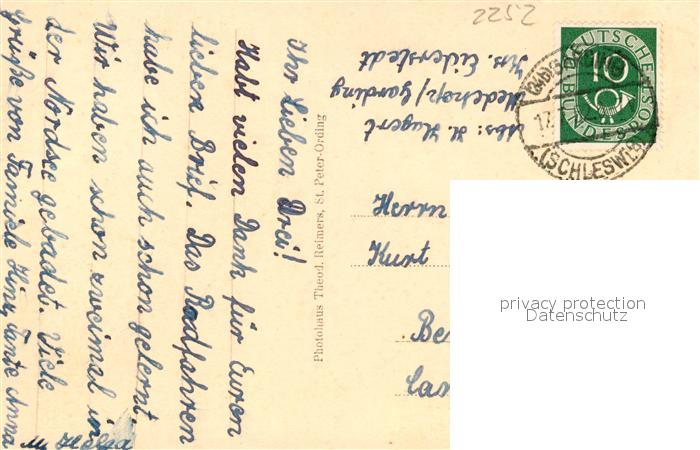 2252
Ihr Lieben Drei!
Habt vielen Dank für Euren
lieben Brief. Das Radfahren
habe ich auch schon gelernt
Wir haben schon zweimal in
der Nordsee gebadet. Viele
Grüße von Familie Hinz, Tante Anna
u. Helga
Photohaus Theod. Reimers, St. Peter-Ording
Abs: H. Hugert
Medehop/Garding
Krs. Eiderstedt
DEUTSCHE
10
BUNDESPOST
17.
(SCHLESWIG)
Herrn
Kurt
privacy protection
Datenschutz